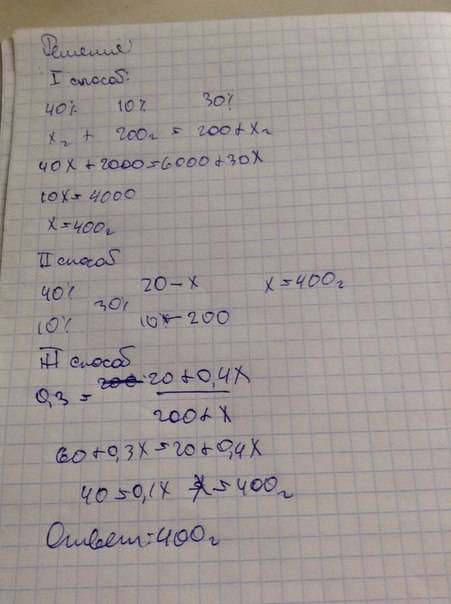 Решение
I способ:
40% 10% 30%
x г + 200г = 200+x г
40x + 2000 = 6000 + 30x
10x = 4000
x = 400г
II способ
40% 20 – x x = 400г
30%
10% 10 – 200
III способ
0,3 = 20 + 0,4x / 200 + x
60 + 0,3x = 20 + 0,4x
40 = 0,1x x = 400г
Ответ: 400г